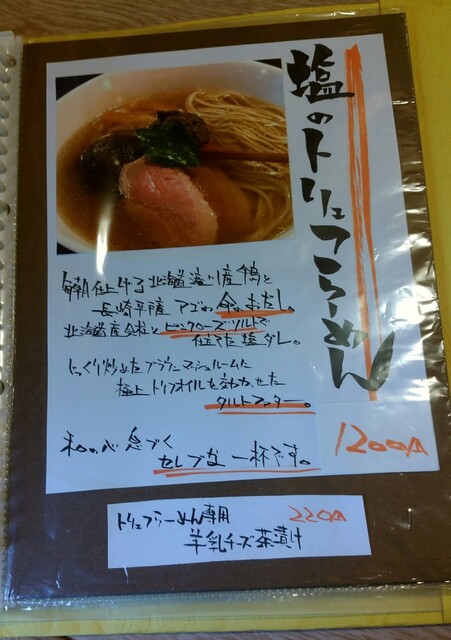 塩のトリュフらーめん
毎朝仕上げる北海道滝川産鴨と
長崎平産アゴの命のおだし。
北海道産会社とピンクローズソルトで
仕立てた塩ダレ。
じっくり炒めたブラウンマッシュルームに
極上トリフオイルを交わせた
タルトフマター。
和の心息づく
セレブな一杯です。
1200円
トリュフらーめん専用 220円
羊乳チーズ茶漬け